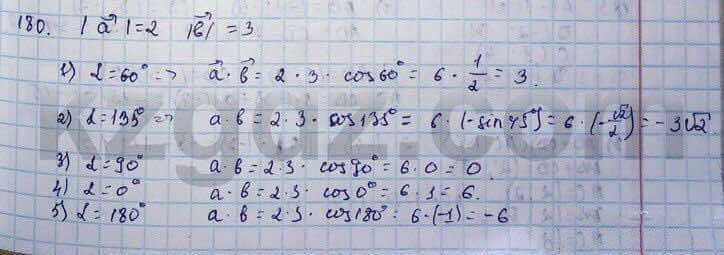 180. |a⃗|=2 |b⃗|=3
1) α=60° => a⃗·b⃗ = 2·3·cos60° = 6·1/2 = 3.
2) α=135° => a·b = 2·3·cos135° = 6·(-sin45°) = 6·(-√2/2) = -3√2
3) α=90° a·b = 2·3·cos90° = 6·0 = 0.
4) α=0° a·b = 2·3·cos0° = 6·1 = 6.
5) α=180° a·b = 2·3·cos180° = 6·(-1) = -6
kzgdz.com